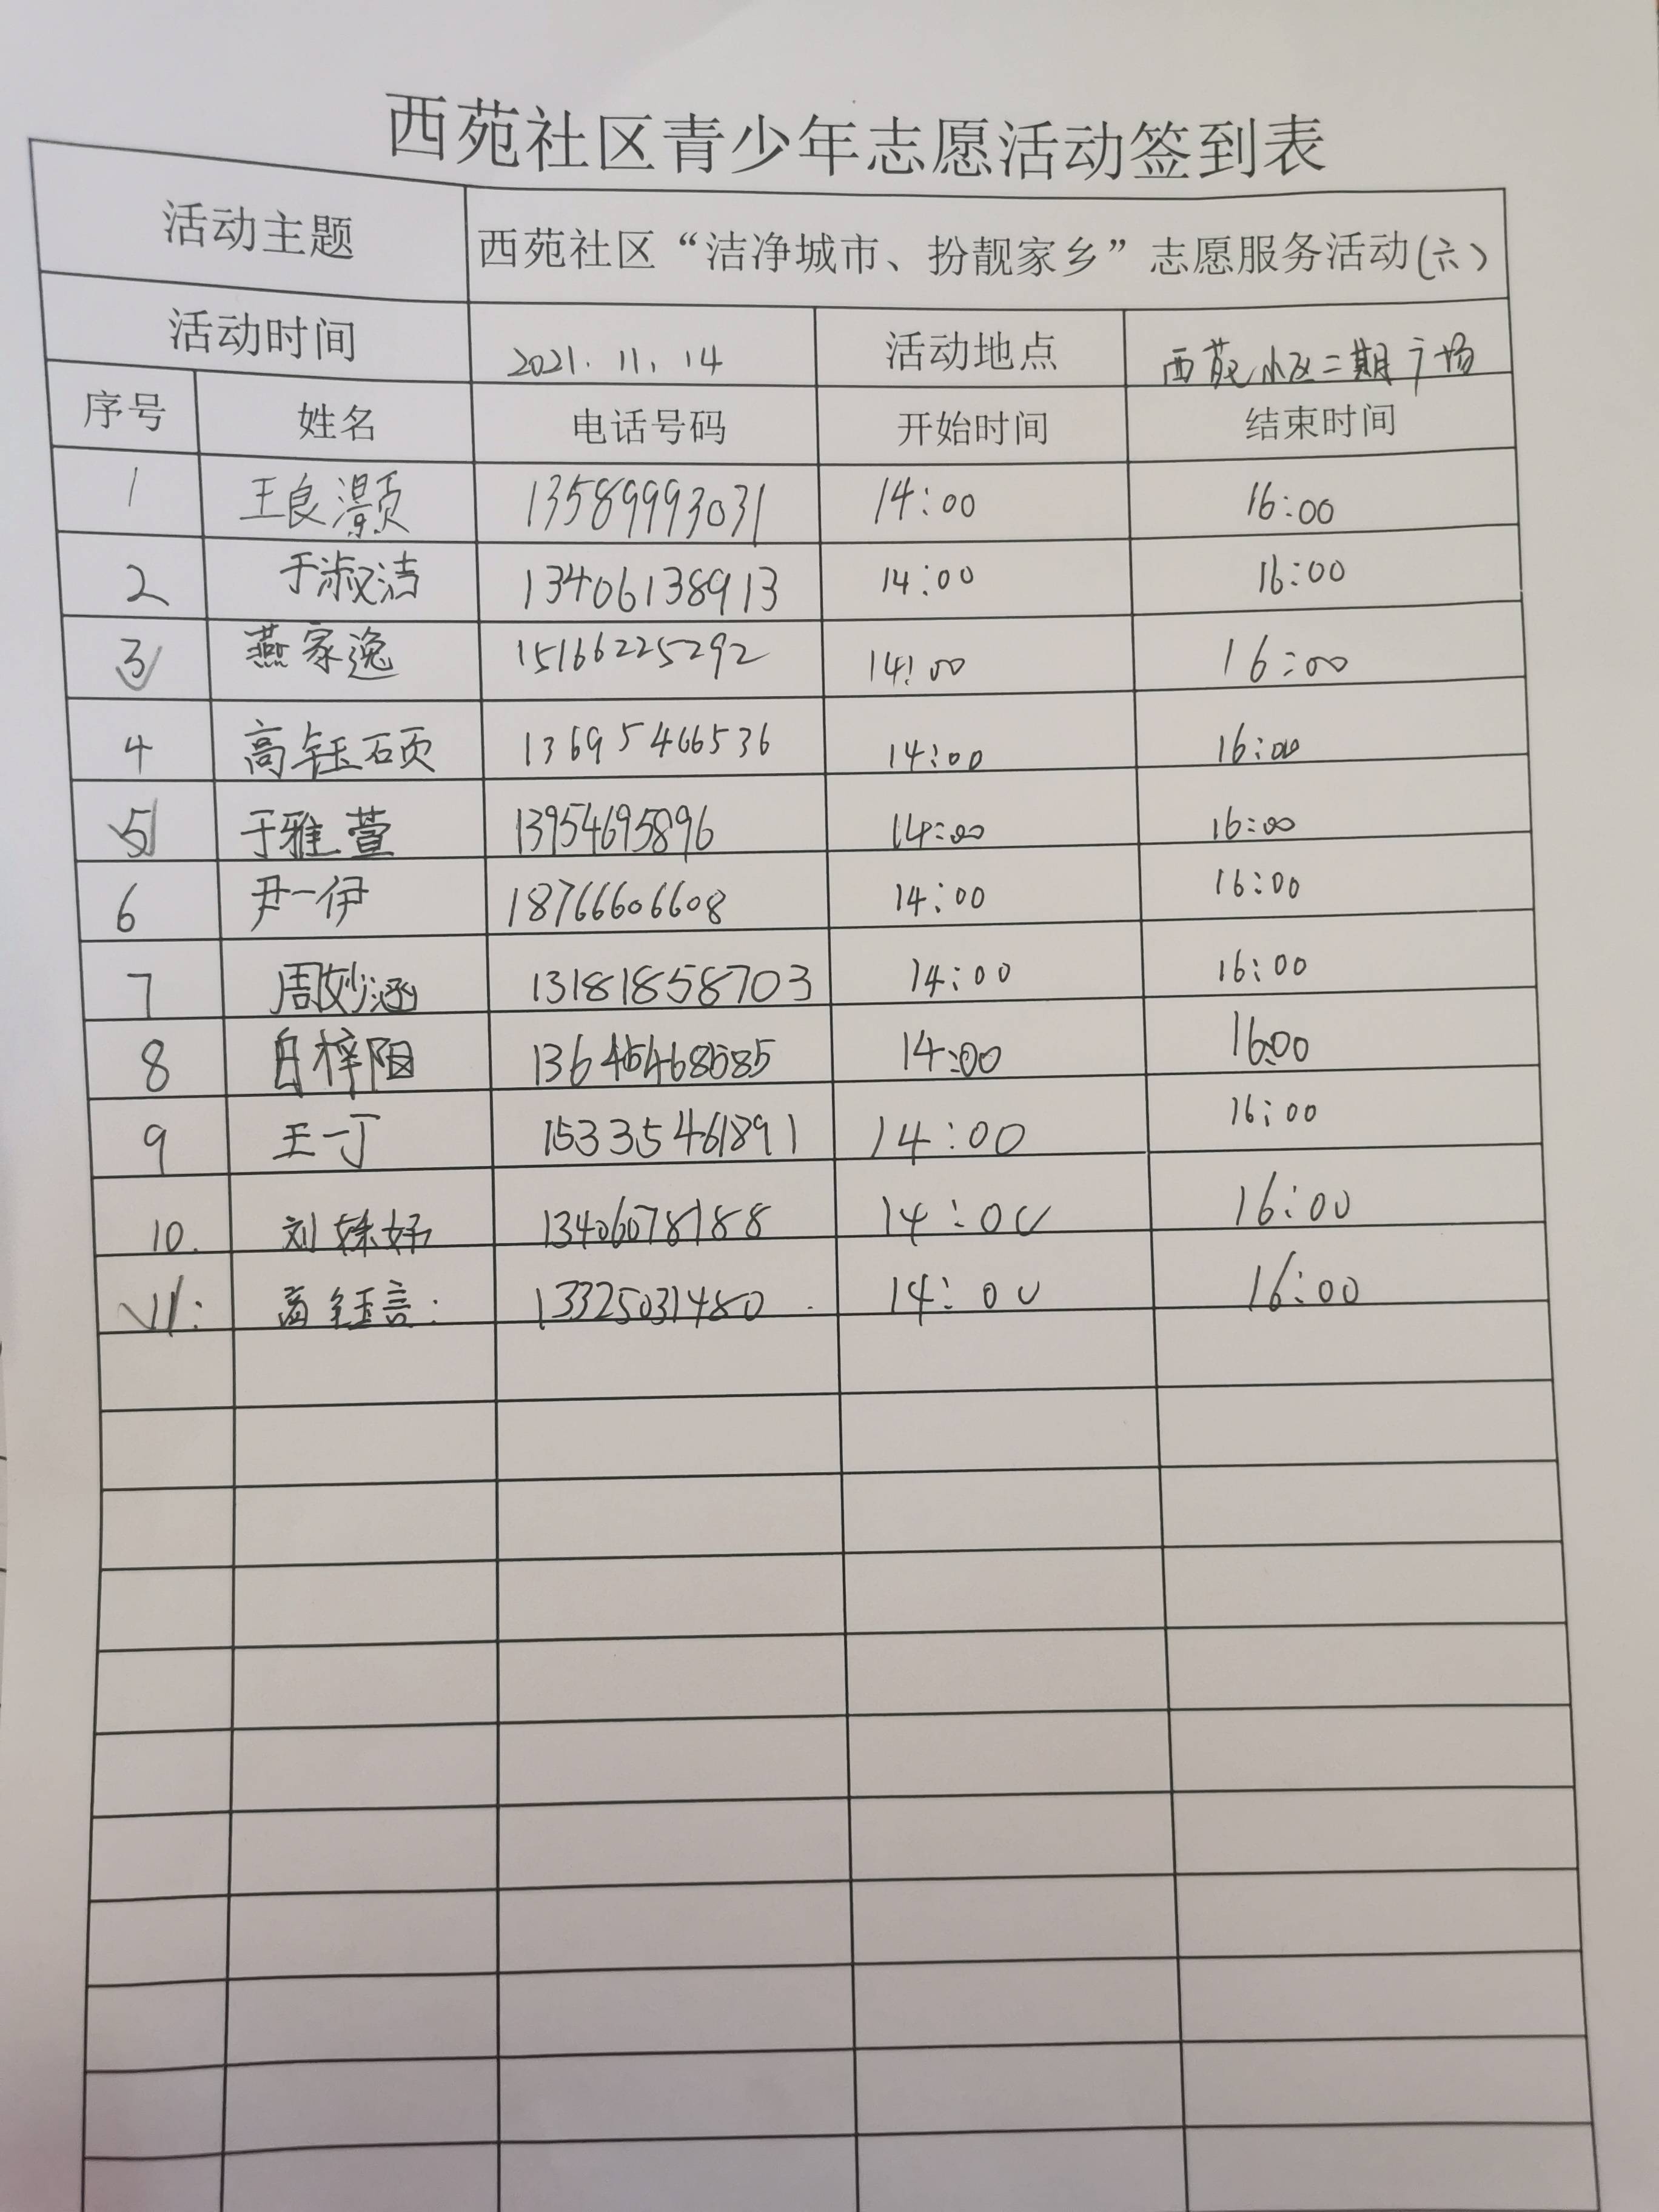 西苑社区青少年志愿活动签到表
活动主题 西苑社区“洁净城市、扮靓家乡”志愿服务活动(六)
活动时间 2021.11.14 活动地点 西苑小区二期广场
序号 姓名 电话号码 开始时间 结束时间
1 王良灏 13589993031 14:00 16:00
2 于淑洁 13406138913 14:00 16:00
3 燕家逸 15166225292 14:00 16:00
4 高钰硕 13695466536 14:00 16:00
5 于雅萱 13954695896 14:00 16:00
6 尹一伊 18766606608 14:00 16:00
7 周妙涵 13181858703 14:00 16:00
8 吕梓阳 14:00 16:00
9 王一丁 15335461891 14:00 16:00
10. 刘姝妤 13406078188 14:00 16:00
11: 高钰言: 13325031480. 14:00 16:00